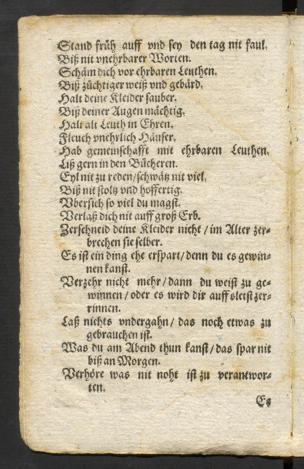 Stand früh auff vnd sey den tag nit faul.
Biß nit vnehrbarer Worten.
Schäm dich vor ehrbaren Leuthen.
Biß züchtiger weiß vnd gebärd.
Halt deine Kleider sauber.
Biß deiner Augen mächtig.
Halt alt Leuth in Ehren.
Fleuch vnehrlich Häuser.
Hab gemeinschafft mit ehrbaren Leuthen.
Liß gern in den Bücheren.
Eyl nit zu reden / schwätz nit viel.
Biß nit stoltz vnd hoffertig.
Vbersich so viel du magst.
Verlaß dich nit auff groß Erb.
Zerschneid deine Kleider nicht / im Alter zer-
brechen sie selber.
Es ist ein ding ehe erspart / denn du es gewin-
nen kanst.
Verzehr nicht mehr / dann du weist zu ge-
winnen / oder es wird dir auffs letst zer-
rinnen.
Laß nichts vndergahn / das noch etwas zu
gebrauchen ist.
Was du am Abend thun kanst / das spar nit
biß an Morgen.
Verhöre was nit noht ist zu verantwor-
ten.
Es